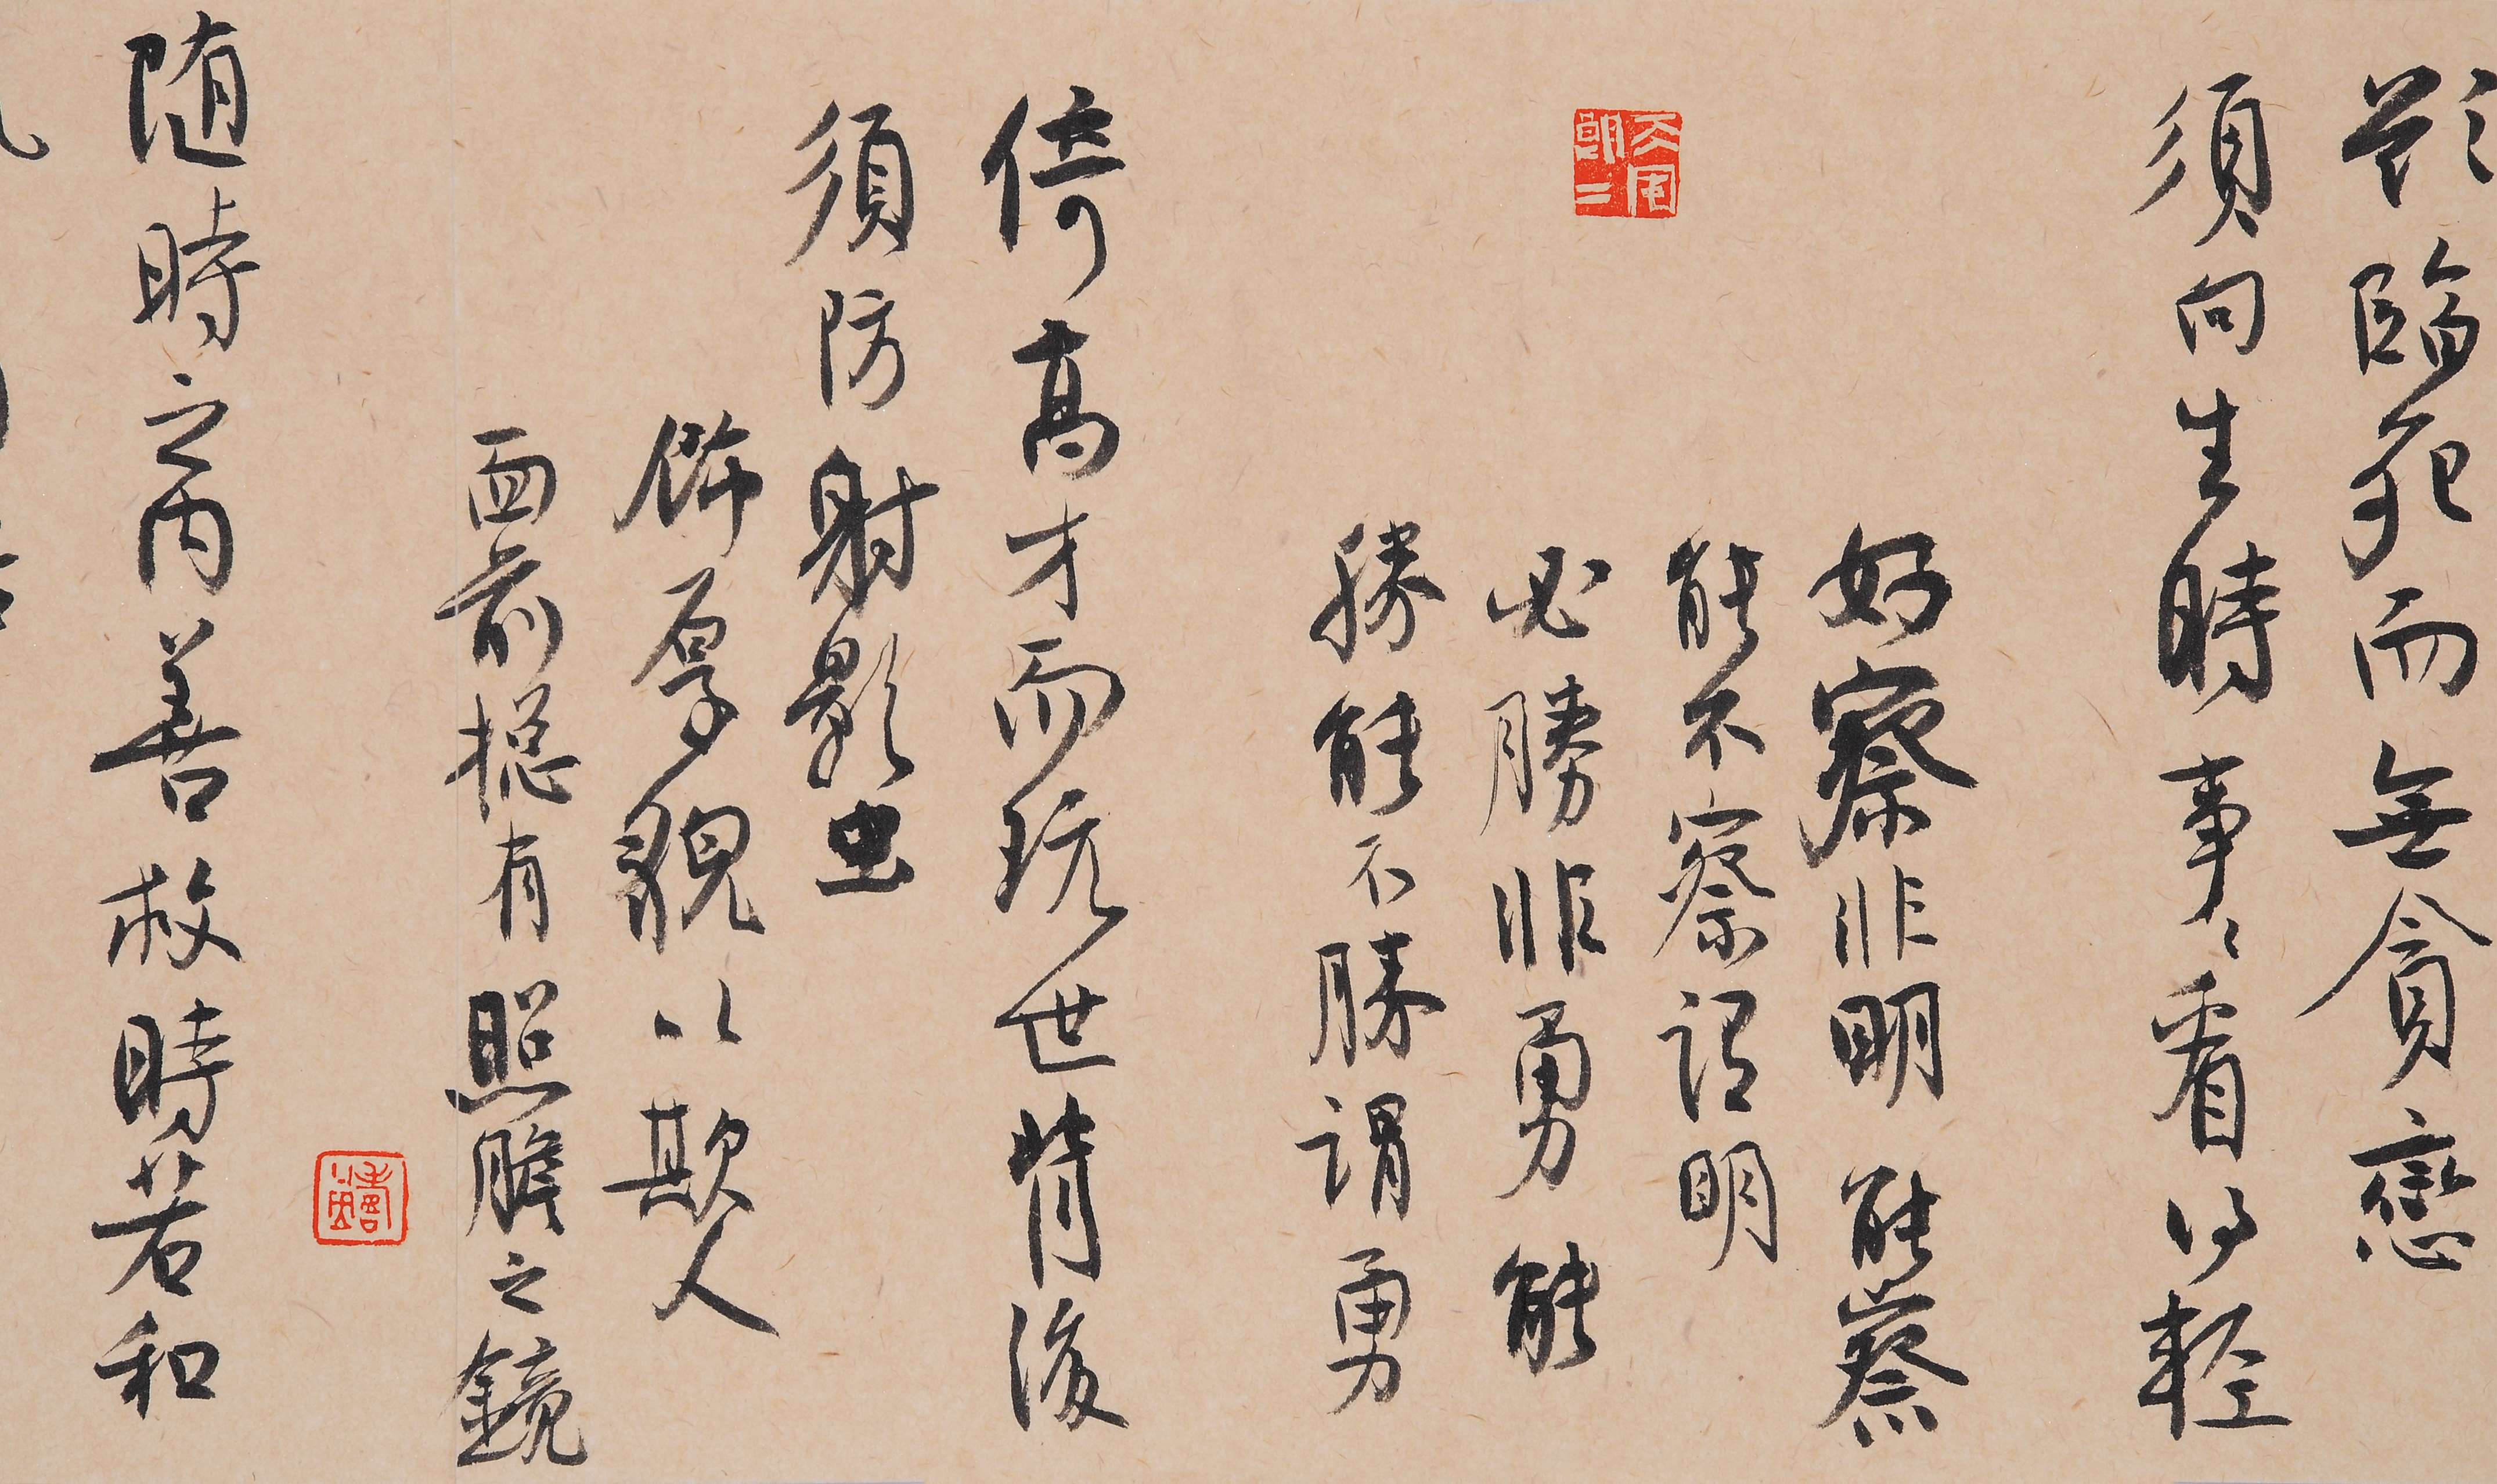 欲臨死而無貪戀
須向生時事〻看得輕
好察非明能察
能不察謂明
必勝非勇能
勝能不勝謂勇
倚高才而玩世背後
須防射影虫
飾厚貌以欺人
面前摠有照膽之鏡
随時之內善救時若和